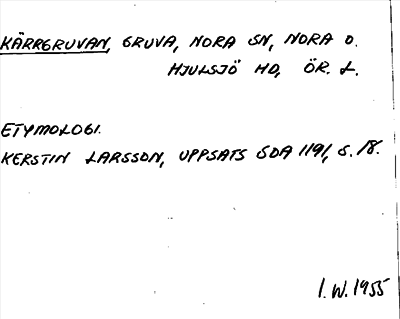 KÄRRGRUVAN, GRUVA, NORA SN, NORA O.
HJULSJÖ HD, ÖR. L.
ETYMOLOGI.
KERSTIN LARSSON, UPPSATS SOA 1191, S. 18.
I. W. 1955